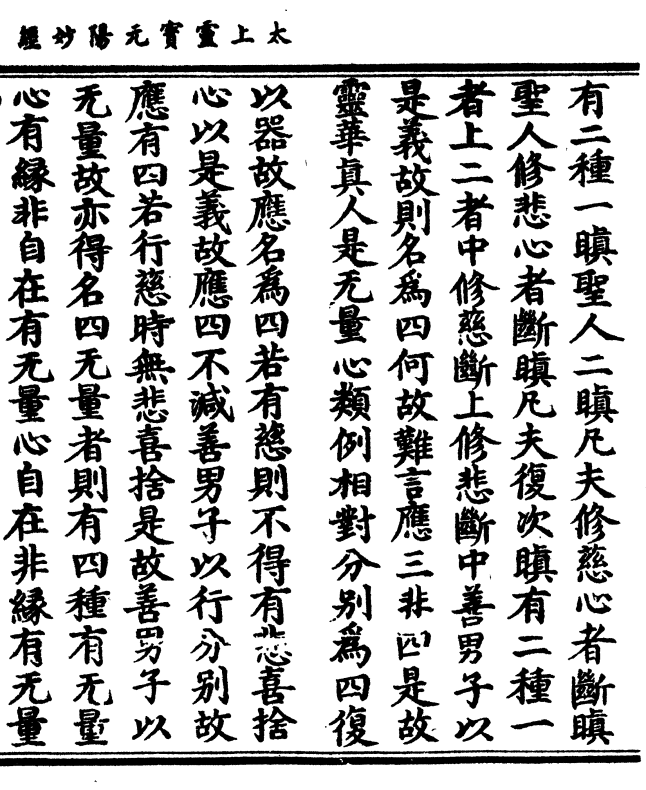 太上靈寶元陽妙經
有二種一瞋聖人二瞋凡夫修慈心者斷瞋
聖人修悲心者斷瞋凡夫復次瞋有二種一
者上二者中修慈斷上修悲斷中善男子以
是義故則名爲四何故難言應三非四是故
靈華真人是无量心類例相對分別爲四復
以器故應名爲四若有慈則不得有悲喜捨
心以是義故應四不減善男子以行分別故
應有四若行慈時無悲喜捨是故善男子以
无量故亦得名四无量者則有四種有无量
心有緣非自在有无量心自在非緣有无量